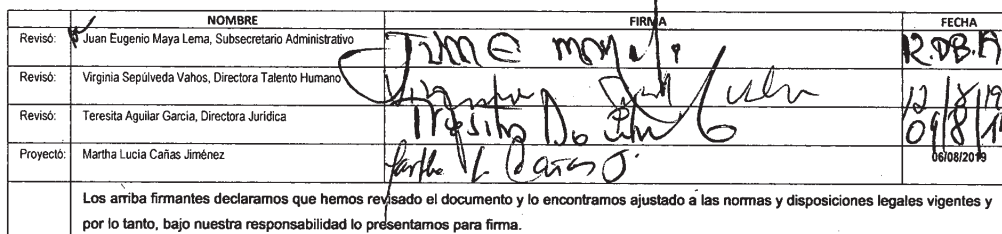 NOMBRE FIRMA FECHA
Revisó: Juan Eugenio Maya Lema, Subsecretario Administrativo 12.08.19
Revisó: Virginia Sepúlveda Vahos, Directora Talento Humano 12/8/19
Revisó: Teresita Aguilar García, Directora Jurídica
Proyectó: Martha Lucia Cañas Jiménez Martha L. Cañas J. 06/08/2019
Los arriba firmantes declaramos que hemos revisado el documento y lo encontramos ajustado a las normas y disposiciones legales vigentes y
por lo tanto, bajo nuestra responsabilidad lo presentamos para firma.